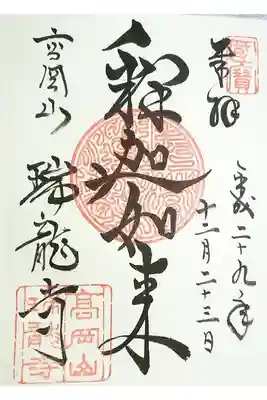 國寶
奉拝
平成二十九年
十二月二十三日
釋迦如来
高岡山
瑞龍寺
高岡山
瑞龍寺